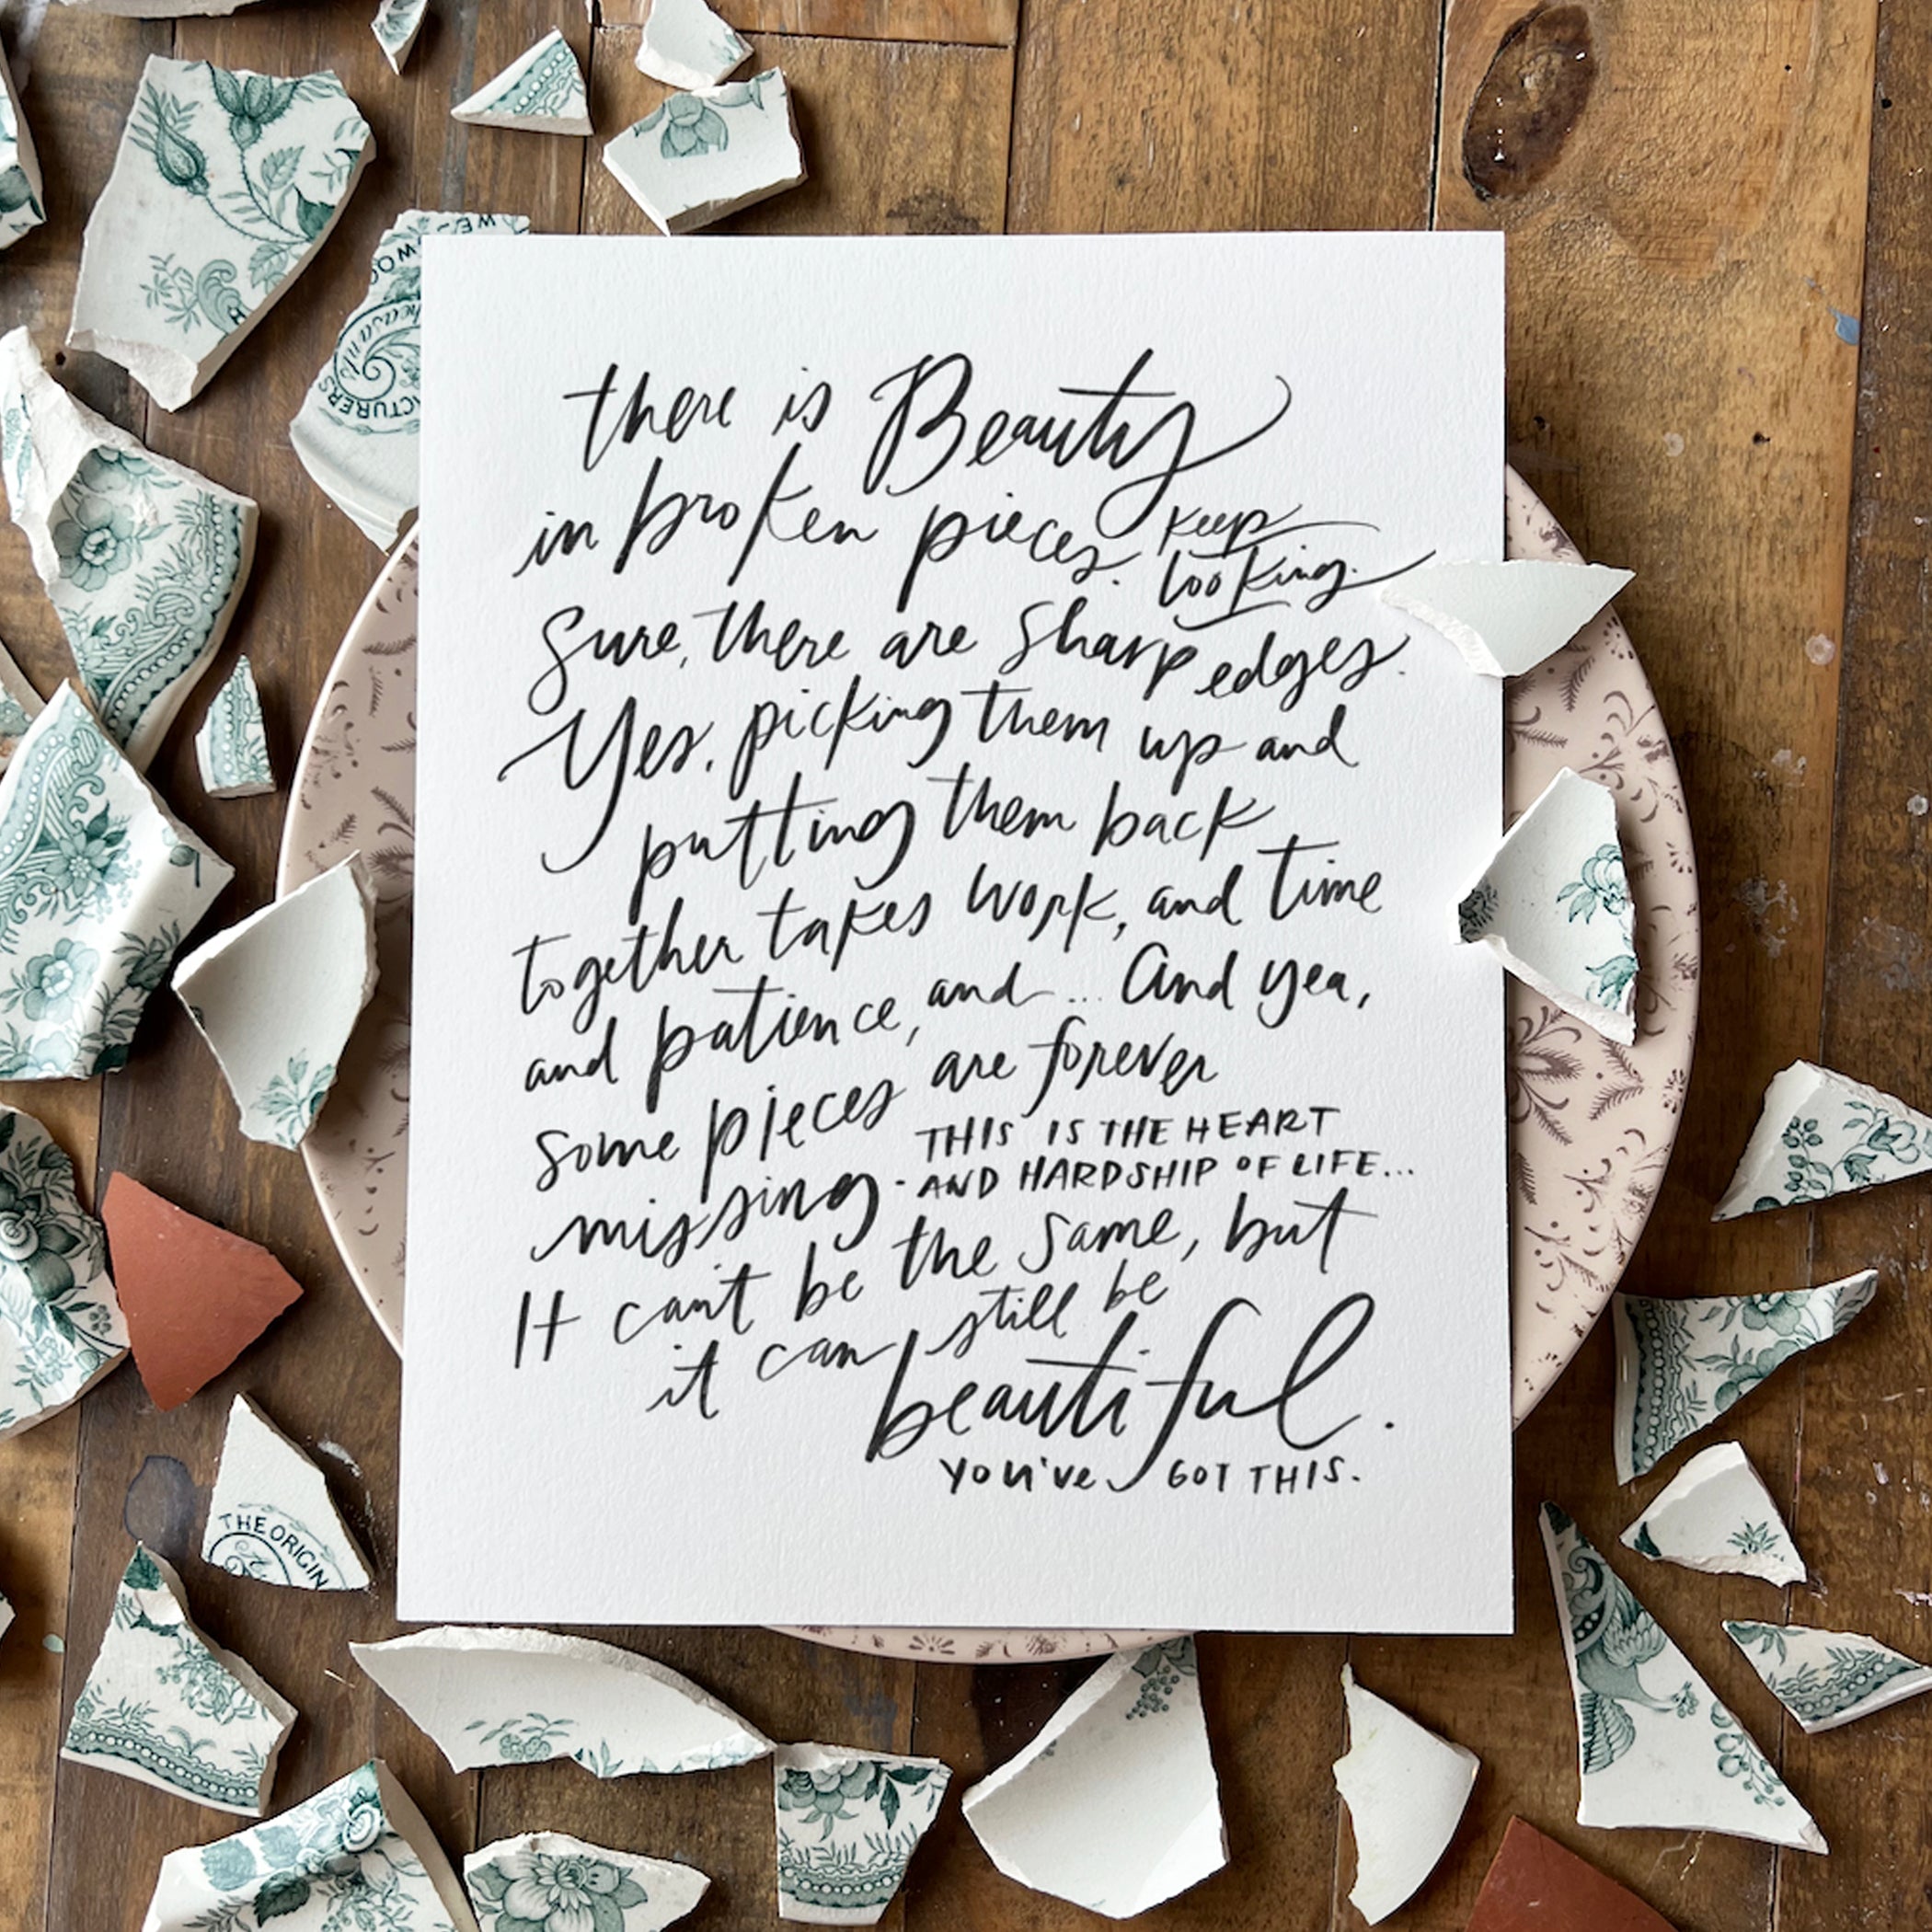 WE
WOO
heasants
CTURERS
there is Beauty
in broken pieces. keep
looking.
Sure, there are sharp edges.
Yes, picking them up and
putting them back
together takes work, and time
and patience, and... And yea,
some pieces are forever
missing. THIS IS THE HEART
AND HARDSHIP OF LIFE...
It can't be the same, but
it can still be
beautiful.
you've GOT THIS.
THE ORIGIN